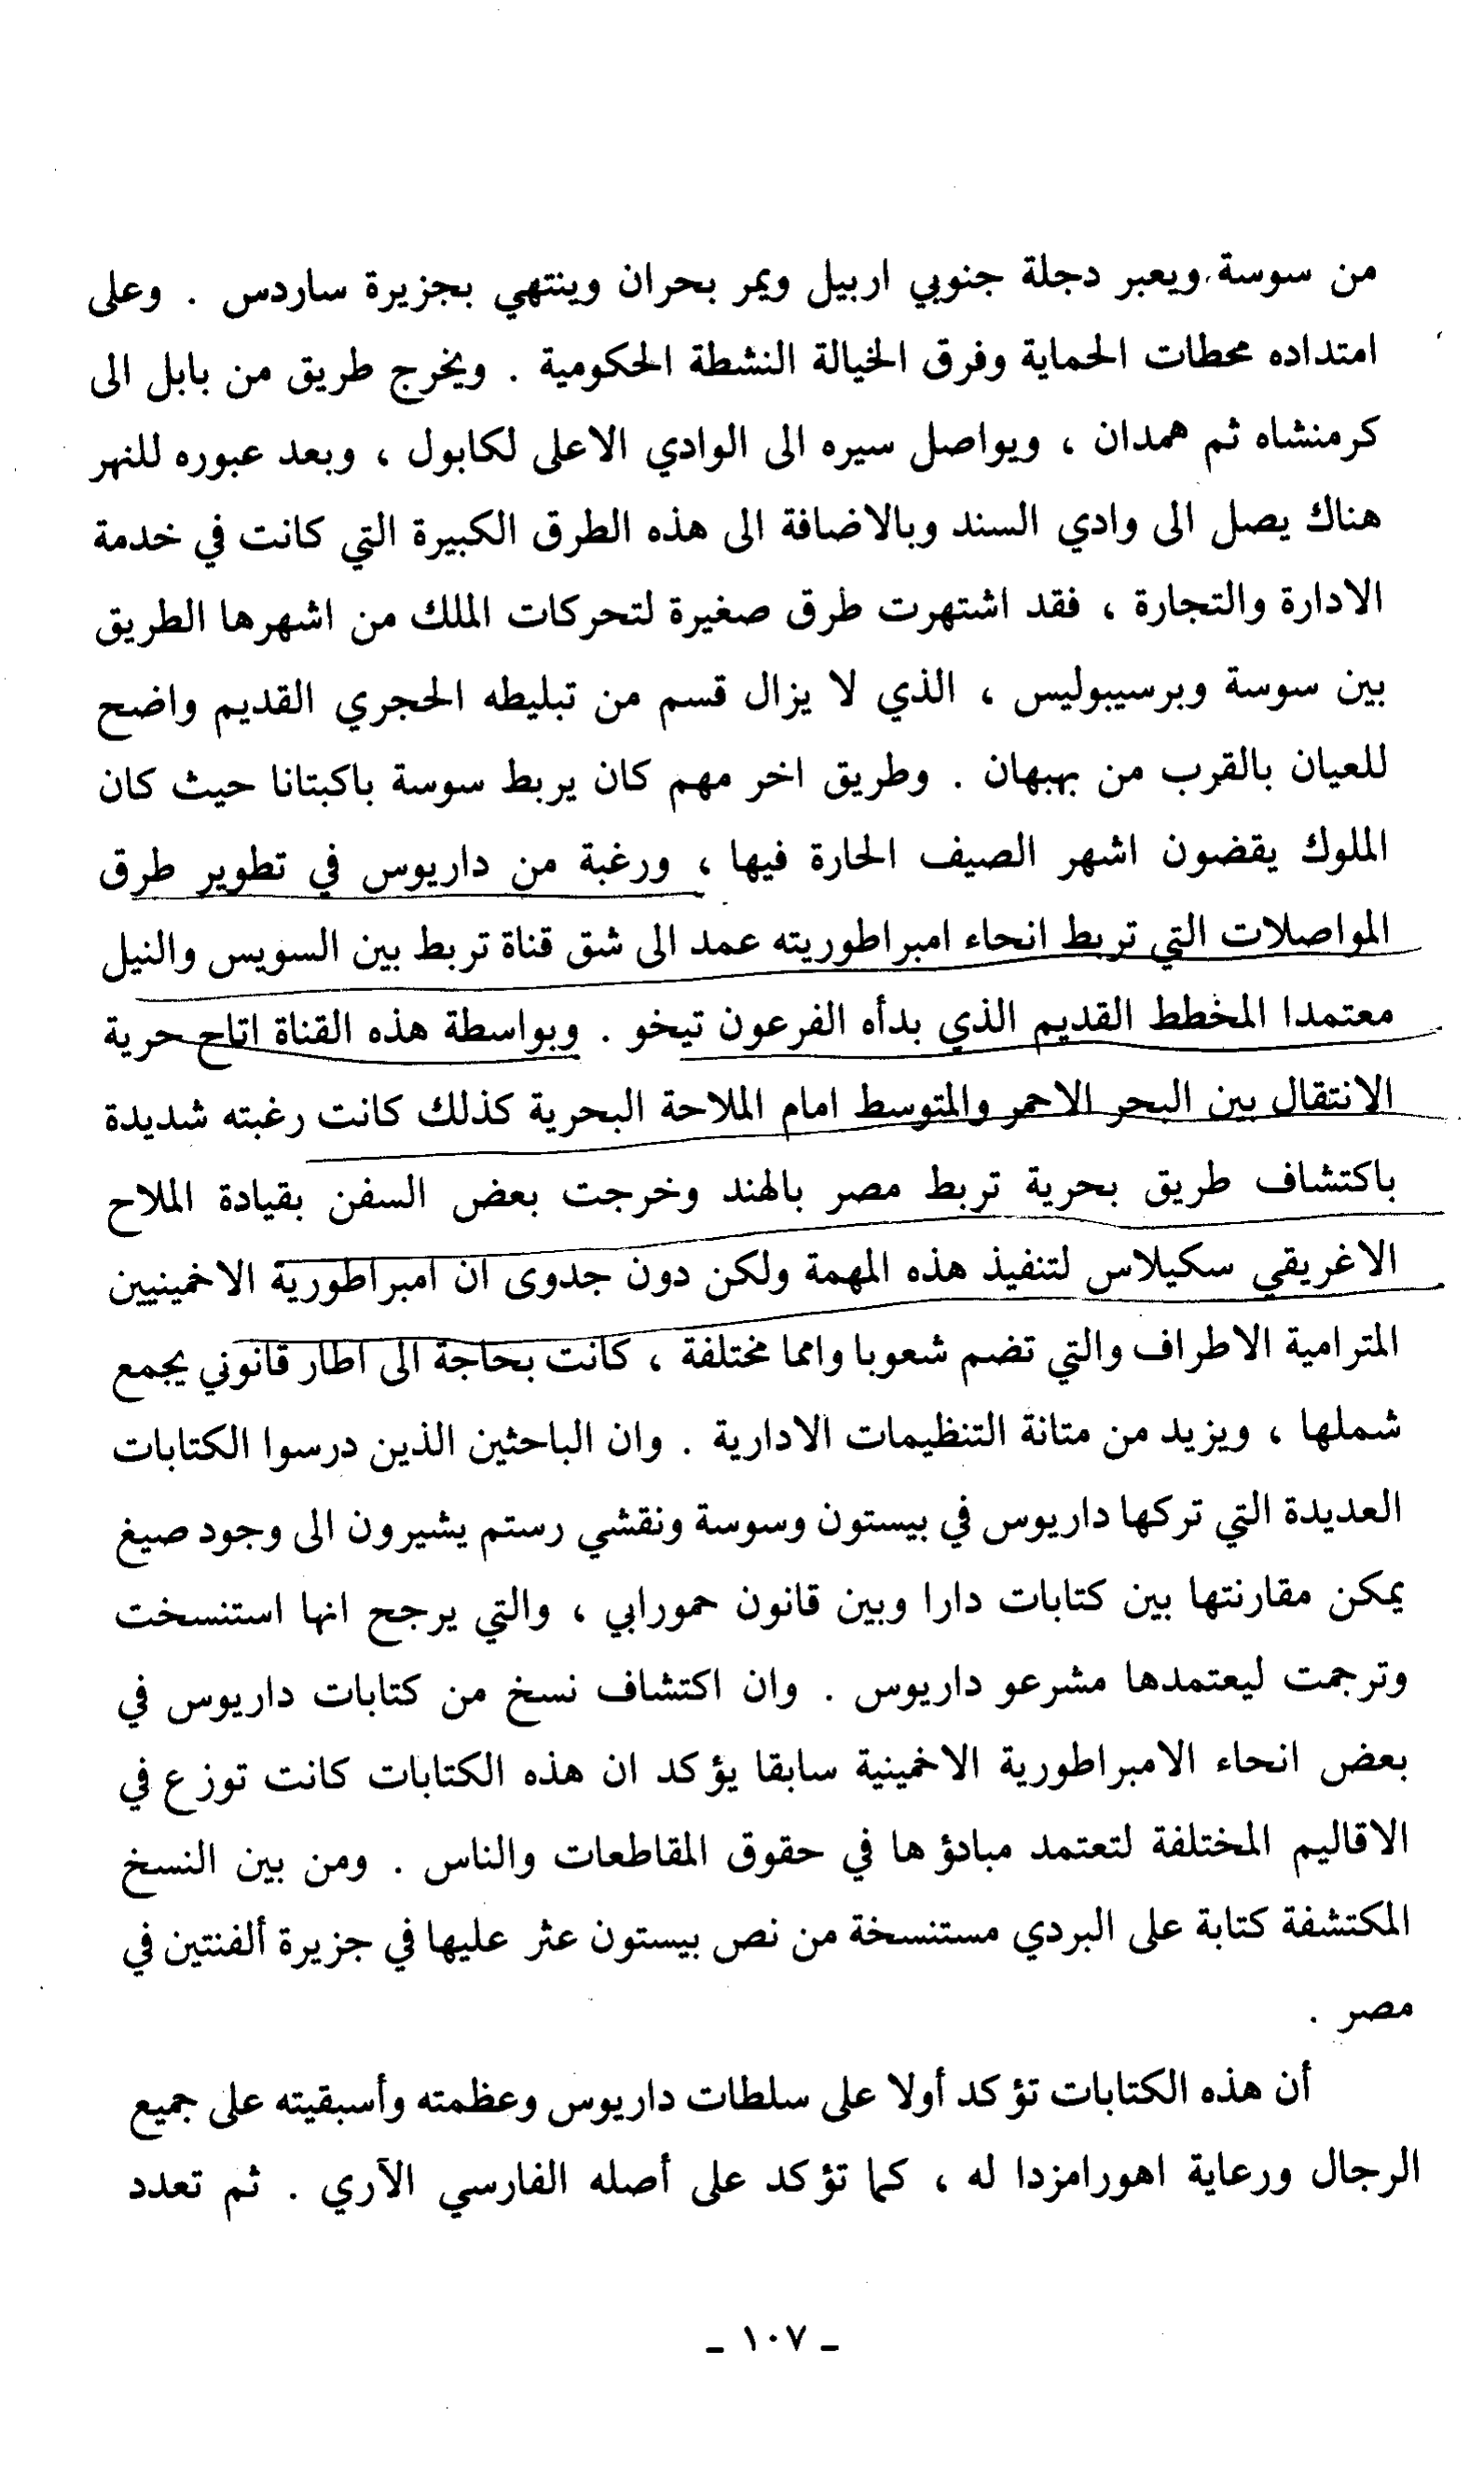 من سوسة ويعبر دجلة جنوبي اربيل ويمر بحران وينتهي بجزيرة ساردس . وعلى
امتداده محطات الحماية وفرق الخيالة النشطة الحكومية . ويخرج طريق من بابل الى
كرمنشاه ثم همدان ، ويواصل سيره الى الوادي الاعلى لكابول ، وبعد عبوره للنهر
هناك يصل الى وادي السند وبالاضافة الى هذه الطرق الكبيرة التي كانت في خدمة
الادارة والتجارة ، فقد اشتهرت طرق صغيرة لتحركات الملك من اشهرها الطريق
بين سوسة وبرسيبوليس ، الذي لا يزال قسم من تبليطه الحجري القديم واضح
للعيان بالقرب من بهبهان . وطريق اخر مهم كان يربط سوسة باكبتانا حيث كان
الملوك يقضون اشهر الصيف الحارة فيها ، ورغبة من داريوس في تطوير طرق
المواصلات التي تربط انحاء امبراطوريته عمد الى شق قناة تربط بين السويس والنيل
معتمدا المخطط القديم الذي بدأه الفرعون تيخو . وبواسطة هذه القناة اتاح حرية
الانتقال بين البحر الاحمر والمتوسط امام الملاحة البحرية كذلك كانت رغبته شديدة
باكتشاف طريق بحرية تربط مصر بالهند وخرجت بعض السفن بقيادة الملاح
الاغريقي سكيلاس لتنفيذ هذه المهمة ولكن دون جدوى ان امبراطورية الاخمينيين
المترامية الاطراف والتي تضم شعوبا وامما مختلفة ، كانت بحاجة الى اطار قانوني يجمع
شملها ، ويزيد من متانة التنظيمات الادارية . وان الباحثين الذين درسوا الكتابات
العديدة التي تركها داريوس في بيستون وسوسة ونقشي رستم يشيرون الى وجود صيغ
يمكن مقارنتها بين كتابات دارا وبين قانون حمورابي ، والتي يرجح انها استنسخت
وترجمت ليعتمدها مشرعو داريوس . وان اكتشاف نسخ من كتابات داريوس في
بعض انحاء الامبراطورية الاخمينية سابقا يؤكد ان هذه الكتابات كانت توزع في
الاقاليم المختلفة لتعتمد مبادؤها في حقوق المقاطعات والناس . ومن بين النسخ
المكتشفة كتابة على البردي مستنسخة من نص بيستون عثر عليها في جزيرة ألفنتين في
مصر .
أن هذه الكتابات تؤكد أولا على سلطات داريوس وعظمته وأسبقيته على جميع
الرجال ورعاية اهورامزدا له ، كما تؤكد على أصله الفارسي الآري . ثم تعدد
ـ ١٠٧ ـ